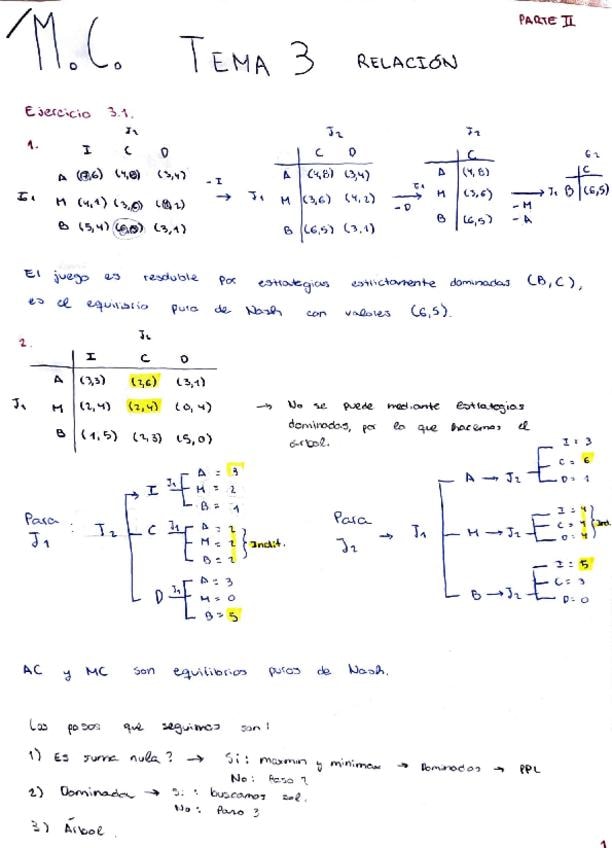 PARTE II
M.C. TEMA 3 RELACIÓN
Ejercicio 3.1.
1.
J2
I C D
A (4,8) (3,4)
J1 M (4,1) (3,6)
B (5,4) (3,1)
- I →
J2
C D
A (4,8) (3,4)
J1 M (3,6) (4,2)
B (6,5) (3,1)
- D →
J2
C
A (4,8)
M (3,6)
B (6,5)
- M
- A
→ J1
C
B (6,5)
El juego es resoluble por estrategias estrictamente dominadas (B,C),
es el equilibrio puro de Nash con valores (6,5).
2.
J2
I C D
A (3,3) (2,6) (3,1)
J1 M (2,4) (2,4) (0,4)
B (1,5) (2,3) (5,0)
→ No se puede mediante estrategias
dominadas, por lo que hacemos el
árbol.
Para J1 : J2
I J1 A = 3
M = 2
B = 1
C J1 A = 2
M = 2
B = 2
Indif.
D J1 A = 3
M = 0
B = 5
Para J2 → J1
A → J2 I = 3
C = 6
D = 1
M → J2 I = 4
C = 4
D = 4
Ind.
B → J2 I = 5
C = 3
D = 0
AC y MC son equilibrios puros de Nash.
Los pasos que seguimos son:
1) Es suma nula? → Si: maxmin y minimax → Dominadas → PPL
No: Paso 2
2) Dominada → Si: buscamos sol.
No: Paso 3
3) Árbol.
1